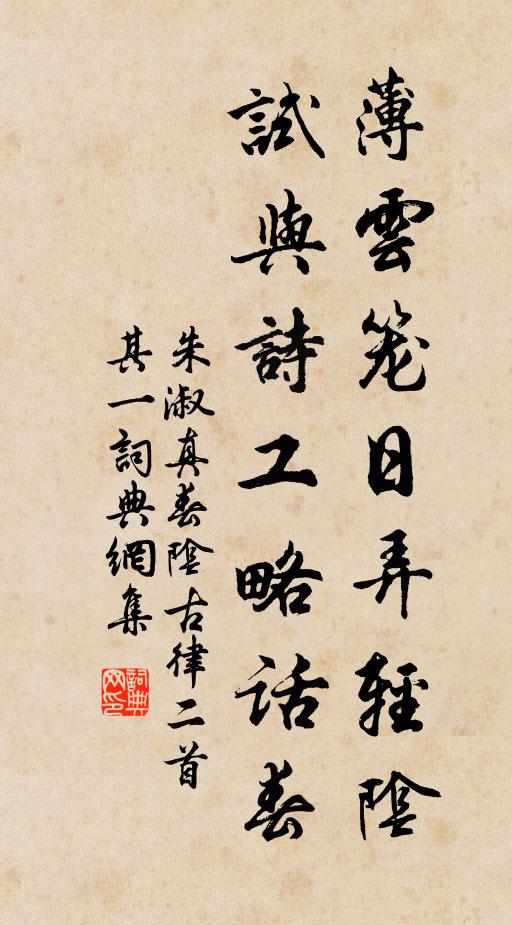 薄雲笼日弄輕陰
試與詩工略話春
朱淑真春陰古律二首
其一詞典網集
詞典網印